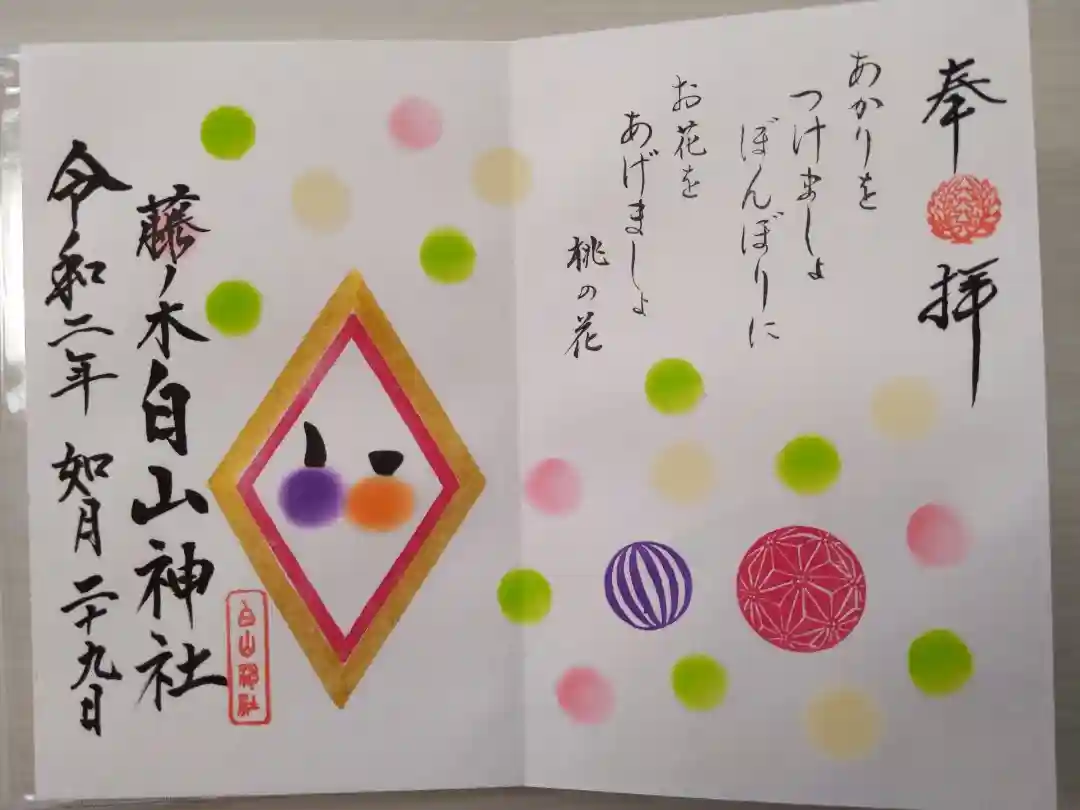 奉拝
あかりを
つけましょ
ぼんぼりに
お花を
あげましょ
桃の花
藤ノ木白山神社
白山神社
令和二年 如月 二十九日